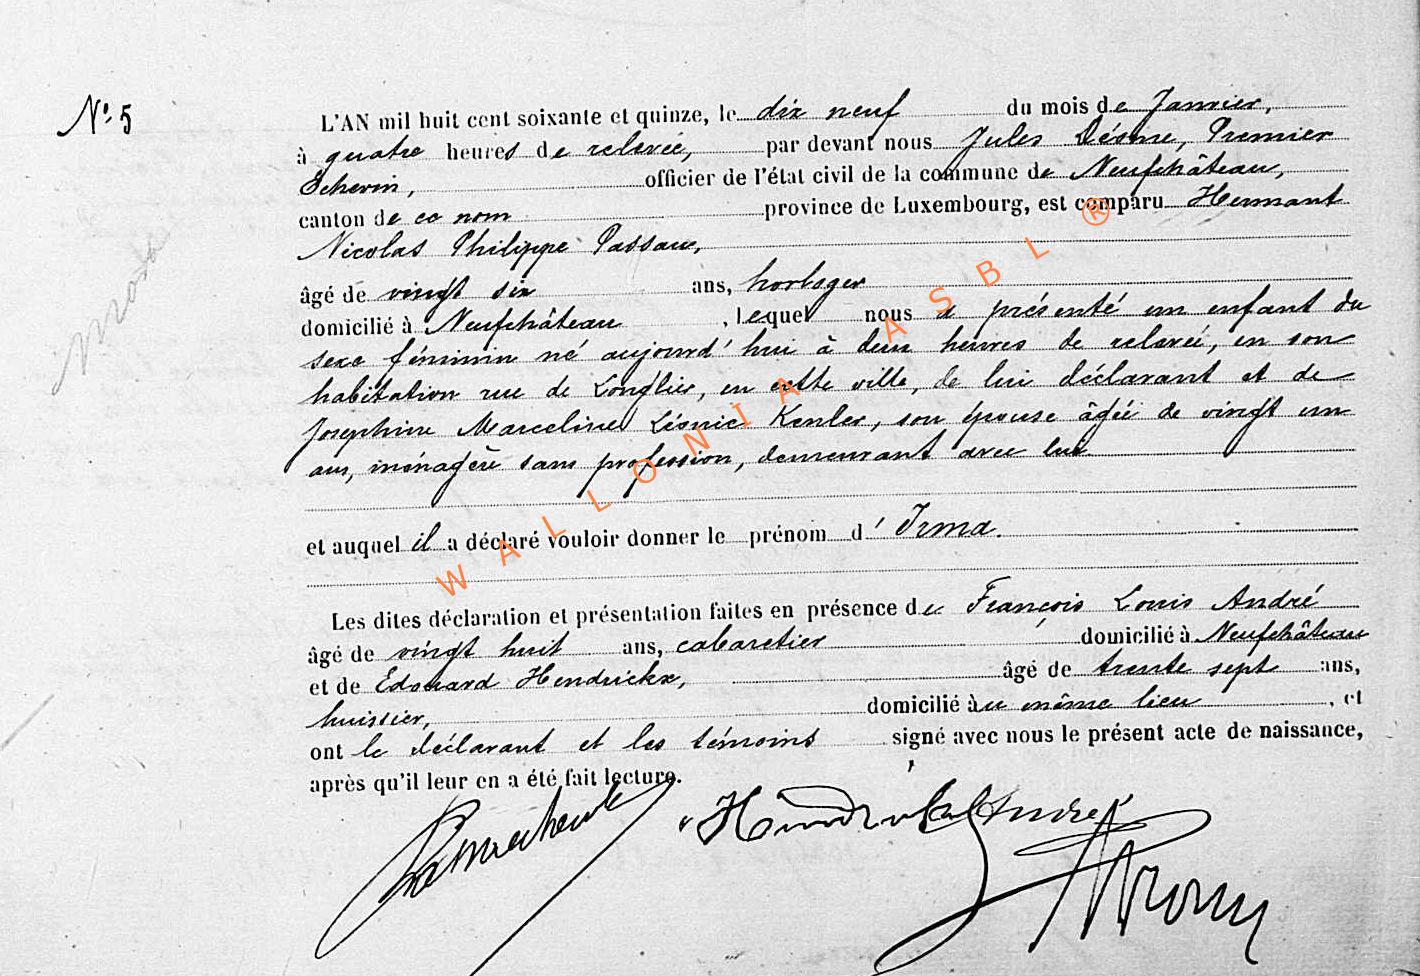 N° 5
L'AN mil huit cent soixante et quinze, le dix neuf du mois de Janvier,
à quatre heures de relevée, par devant nous Jules Désme, Premier
Echevin, officier de l'état civil de la commune de Neufchâteau,
canton de ce nom province de Luxembourg, est comparu Hermant
Nicolas Philippe Passau,
âgé de vingt six ans, horloger
domicilié à Neufchâteau, lequel nous a présenté un enfant du
sexe féminin né aujourd'hui à deux heures de relevée, en son
habitation rue de Longlier, en cette ville, de lui déclarant et de
Josephine Marceline Lésnie Kenler, son épouse âgée de vingt un
ans, ménagère sans profession, demeurant avec lui
et auquel il a déclaré vouloir donner le prénom d'Irma.
Les dites déclaration et présentation faites en présence de François Louis André
âgé de vingt huit ans, cabaretier domicilié à Neufchâteau
et de Edouard Hendrickx, âgé de trente sept ans,
huissier, domicilié au même lieu, et
ont le déclarant et les témoins signé avec nous le présent acte de naissance,
après qu'il leur en a été fait lecture.
WALLONIA ASBL ®